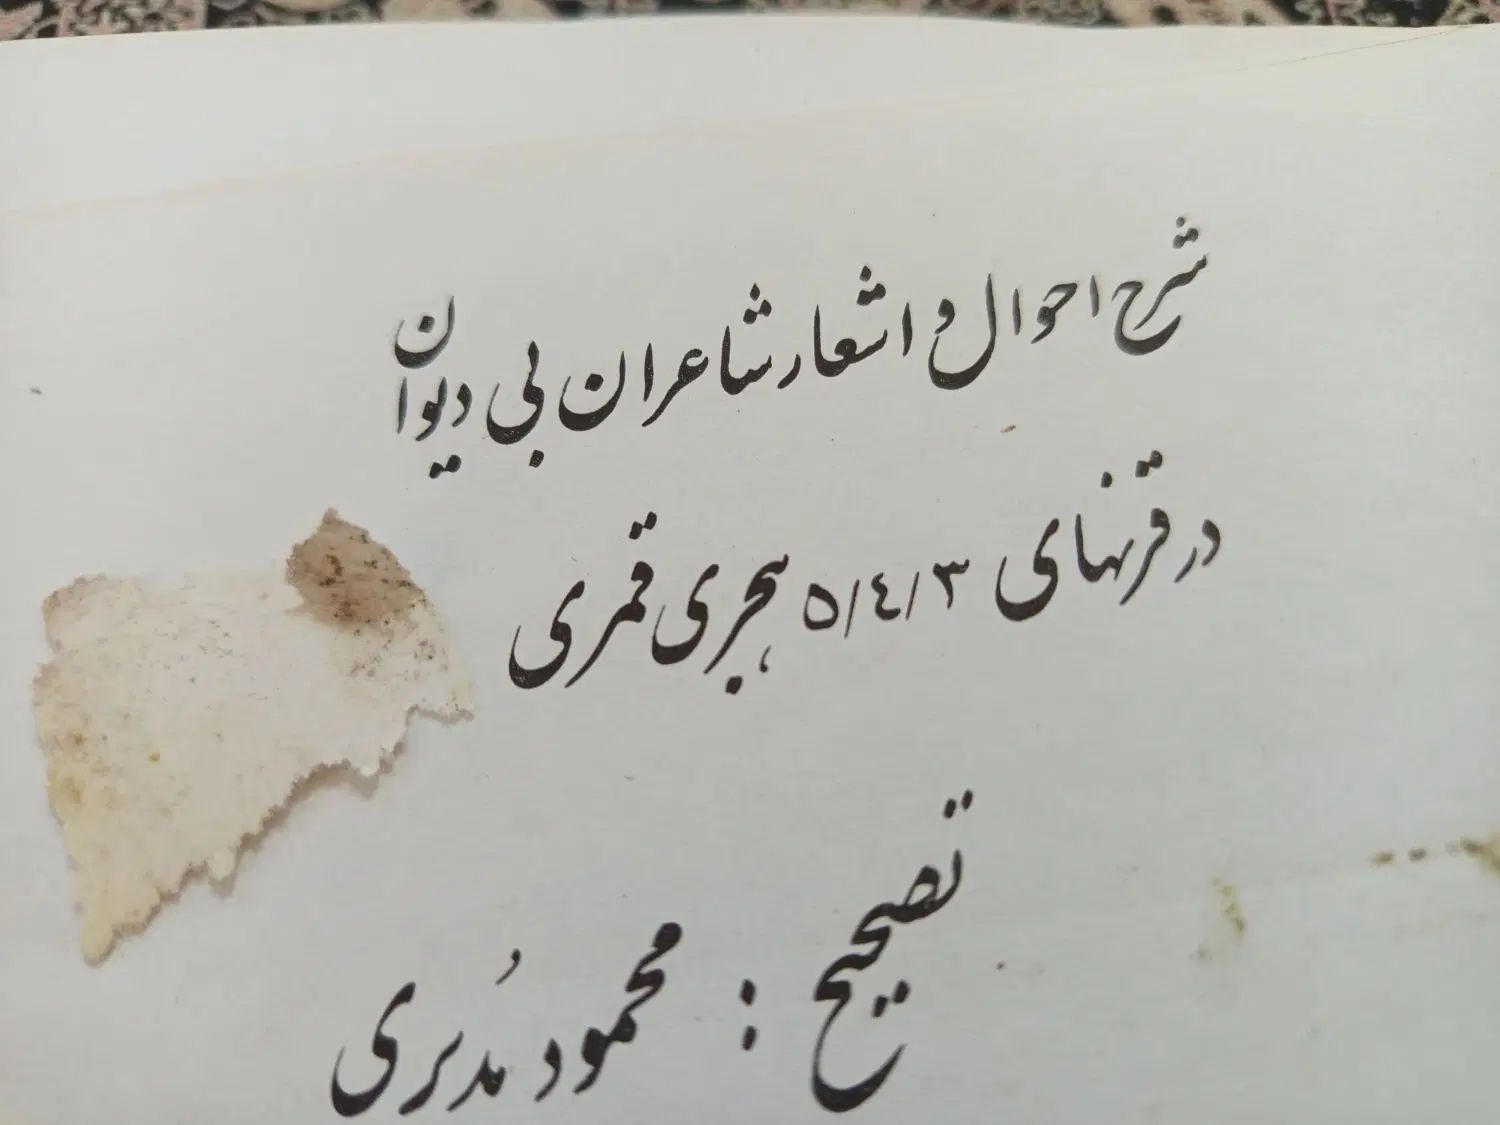 شرح احوال و اشعار شاعران بی دیوان
در قرنهای ۳/٤/۵ هجری قمری
تصحیح : محمود مُدبری